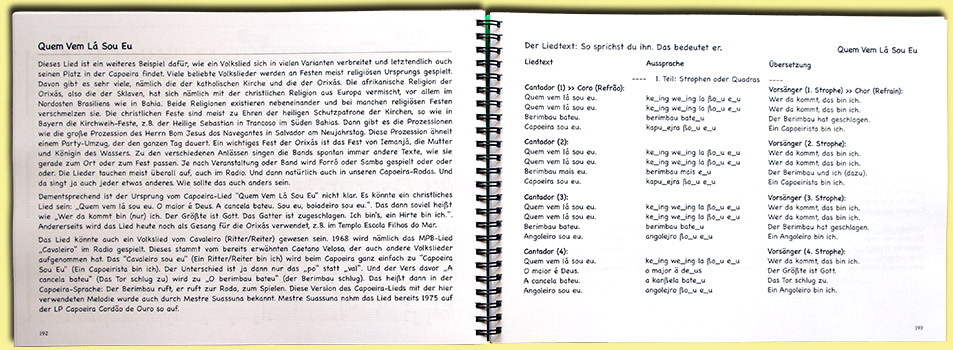 Quem Vem Lá Sou Eu
Dieses Lied ist ein weiteres Beispiel dafür, wie ein Volkslied sich in vielen Varianten verbreitet und letztendlich auch
seinen Platz in der Capoeira findet. Viele beliebte Volkslieder werden an Festen meist religiösen Ursprungs gespielt.
Davon gibt es sehr viele, nämlich die der katholischen Kirche und die der Orixás. Die afrikanische Religion der
Orixás, also die der Sklaven, hat sich nämlich mit der christlichen Religion aus Europa vermischt, vor allem im
Nordosten Brasiliens wie in Bahia. Beide Religionen existieren nebeneinander und bei manchen religiösen Festen
verschmelzen sie. Die christlichen Feste sind meist zu Ehren der heiligen Schutzpatrone der Kirchen, so wie in
Bayern die Kirchweih-Feste, z.B. der Heilige Sebastian in Trancoso im Süden Bahias. Dann gibt es die Prozessionen
wie die große Prozession des Herrn Bom Jesus dos Navegantes in Salvador am Neujahrstag. Diese Prozession ähnelt
einem Party-Umzug, der den ganzen Tag dauert. Ein wichtiges Fest der Orixás ist das Fest von Iemanjá, die Mutter
und Königin des Wassers. Zu den verschiedenen Anlässen singen die Bands spontan immer andere Texte, wie sie
gerade zum Ort oder zum Fest passen. Je nach Veranstaltung oder Band wird Forró oder Samba gespielt oder und
oder. Die Lieder tauchen meist überall auf, auch im Radio. Und dann natürlich auch in unseren Capoeira-Rodas. Und
da singt ja auch jeder etwas anderes. Wie sollte das auch anders sein.
Dementsprechend ist der Ursprung vom Capoeira-Lied "Quem Vem Lá Sou Eu" nicht klar. Es könnte ein christliches
Lied sein: „Quem vem lá sou eu. O maior é Deus. A cancela bateu. Sou eu, boiadeiro sou eu.“. Das dann soviel heißt
wie „Wer da kommt bin (nur) ich. Der Größte ist Gott. Das Gatter ist zugeschlagen. Ich bin's, ein Hirte bin ich.“.
Andererseits wird das Lied heute noch als Gesang für die Orixás verwendet, z.B. im Templo Escola Filhos do Mar.
Das Lied könnte auch ein Volkslied vom Cavaleiro (Ritter/Reiter) gewesen sein. 1968 wird nämlich das MPB-Lied
„Cavaleiro“ im Radio gespielt. Dieses stammt vom bereits erwähnten Caetano Veloso, der auch andere Volkslieder
aufgenommen hat. Das "Cavaleiro sou eu" (Ein Ritter/Reiter bin ich) wird beim Capoeira ganz einfach zu "Capoeira
Sou Eu" (Ein Capoeirista bin ich). Der Unterschied ist ja dann nur das „po“ statt „val“. Und der Vers davor „A
cancela bateu“ (Das Tor schlug zu) wird zu „O berimbau bateu“ (der Berimbau schlug). Das heißt dann in der
Capoeira-Sprache: Der Berimbau ruft, er ruft zur Roda, zum Spielen. Diese Version des Capoeira-Lieds mit der hier
verwendeten Melodie wurde auch durch Mestre Suassuna bekannt. Mestre Suassuna nahm das Lied bereits 1975 auf
der LP Capoeira Cordão de Ouro so auf.
192
Der Liedtext: So sprichst du ihn. Das bedeutet er. Quem Vem Lá Sou Eu
Liedtext Aussprache Übersetzung
---- 1. Teil: Strophen oder Quadras ----
Cantador (1) >> Coro (Refrão): Vorsänger (1. Strophe) >> Chor (Refrain):
Quem vem lá sou eu. ke_ing we_ing la ßo_u e_u Wer da kommt, das bin ich.
Quem vem lá sou eu. ke_ing we_ing la ßo_u e_u Wer da kommt, das bin ich.
Berimbau bateu. berimbau bate_u Der Berimbau hat geschlagen.
Capoeira sou eu. kapu_ejra ßo_u e_u Ein Capoeirista bin ich.
Cantador (2): Vorsänger (2. Strophe):
Quem vem lá sou eu. ke_ing we_ing la ßo_u e_u Wer da kommt, das bin ich.
Quem vem lá sou eu. ke_ing we_ing la ßo_u e_u Wer da kommt, das bin ich.
Berimbau mais eu. berimbau mais e_u Der Berimbau und ich (dazu).
Capoeira sou eu. kapu_ejra ßo_u e_u Ein Capoeirista bin ich.
Cantador (3): Vorsänger (3. Strophe):
Quem vem lá sou eu. ke_ing we_ing la ßo_u e_u Wer da kommt, das bin ich.
Quem vem lá sou eu. ke_ing we_ing la ßo_u e_u Wer da kommt, das bin ich.
Berimbau bateu. berimbau bate_u Der Berimbau hat geschlagen.
Angoleiro sou eu. angolejro ßo_u e_u Ein Angoleiro bin ich.
Cantador (4): Vorsänger (4. Strophe):
Quem vem lá sou eu. ke_ing we_ing la ßo_u e_u Wer da kommt, das bin ich.
O maior é Deus. o major ä de_us Der Größte ist Gott.
A cancela bateu. a kanßela bate_u Das Tor schlug zu.
Angoleiro sou eu. angolejro ßo_u e_u Ein Angoleiro bin ich.
193